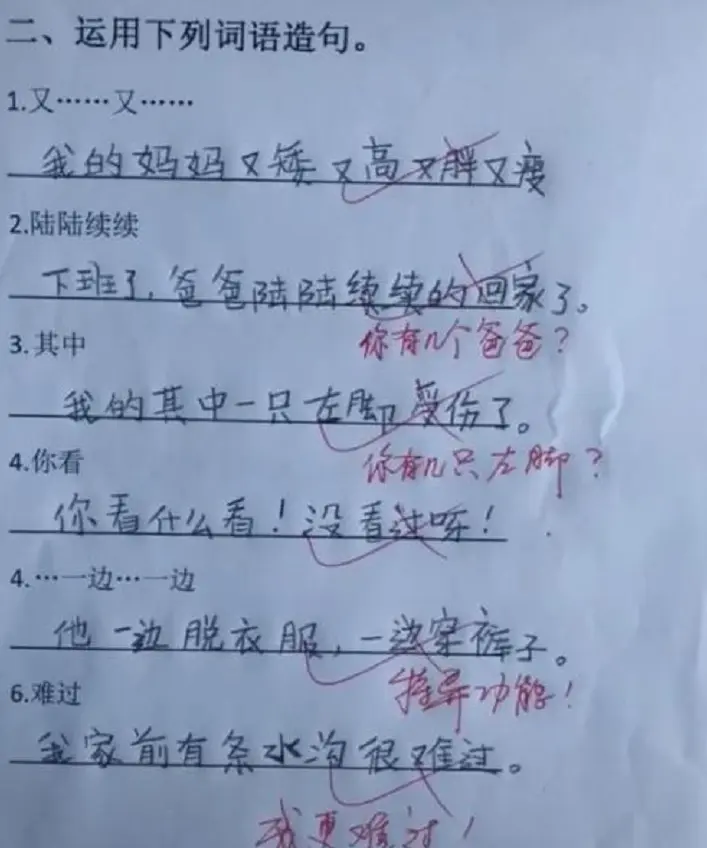 二、运用下列词语造句。
1.又……又……
我的妈妈又矮又高又胖又瘦
2.陆陆续续
下班了,爸爸陆陆续续的回家了。
你有几个爸爸？
3.其中
我的其中一只左脚受伤了。
你有几只左脚？
4.你看
你看什么看！没看过呀！
4.…一边…一边
他一边脱衣服,一边穿裤子。
特异功能！
6.难过
我家前有条水沟很难过。
我更难过！